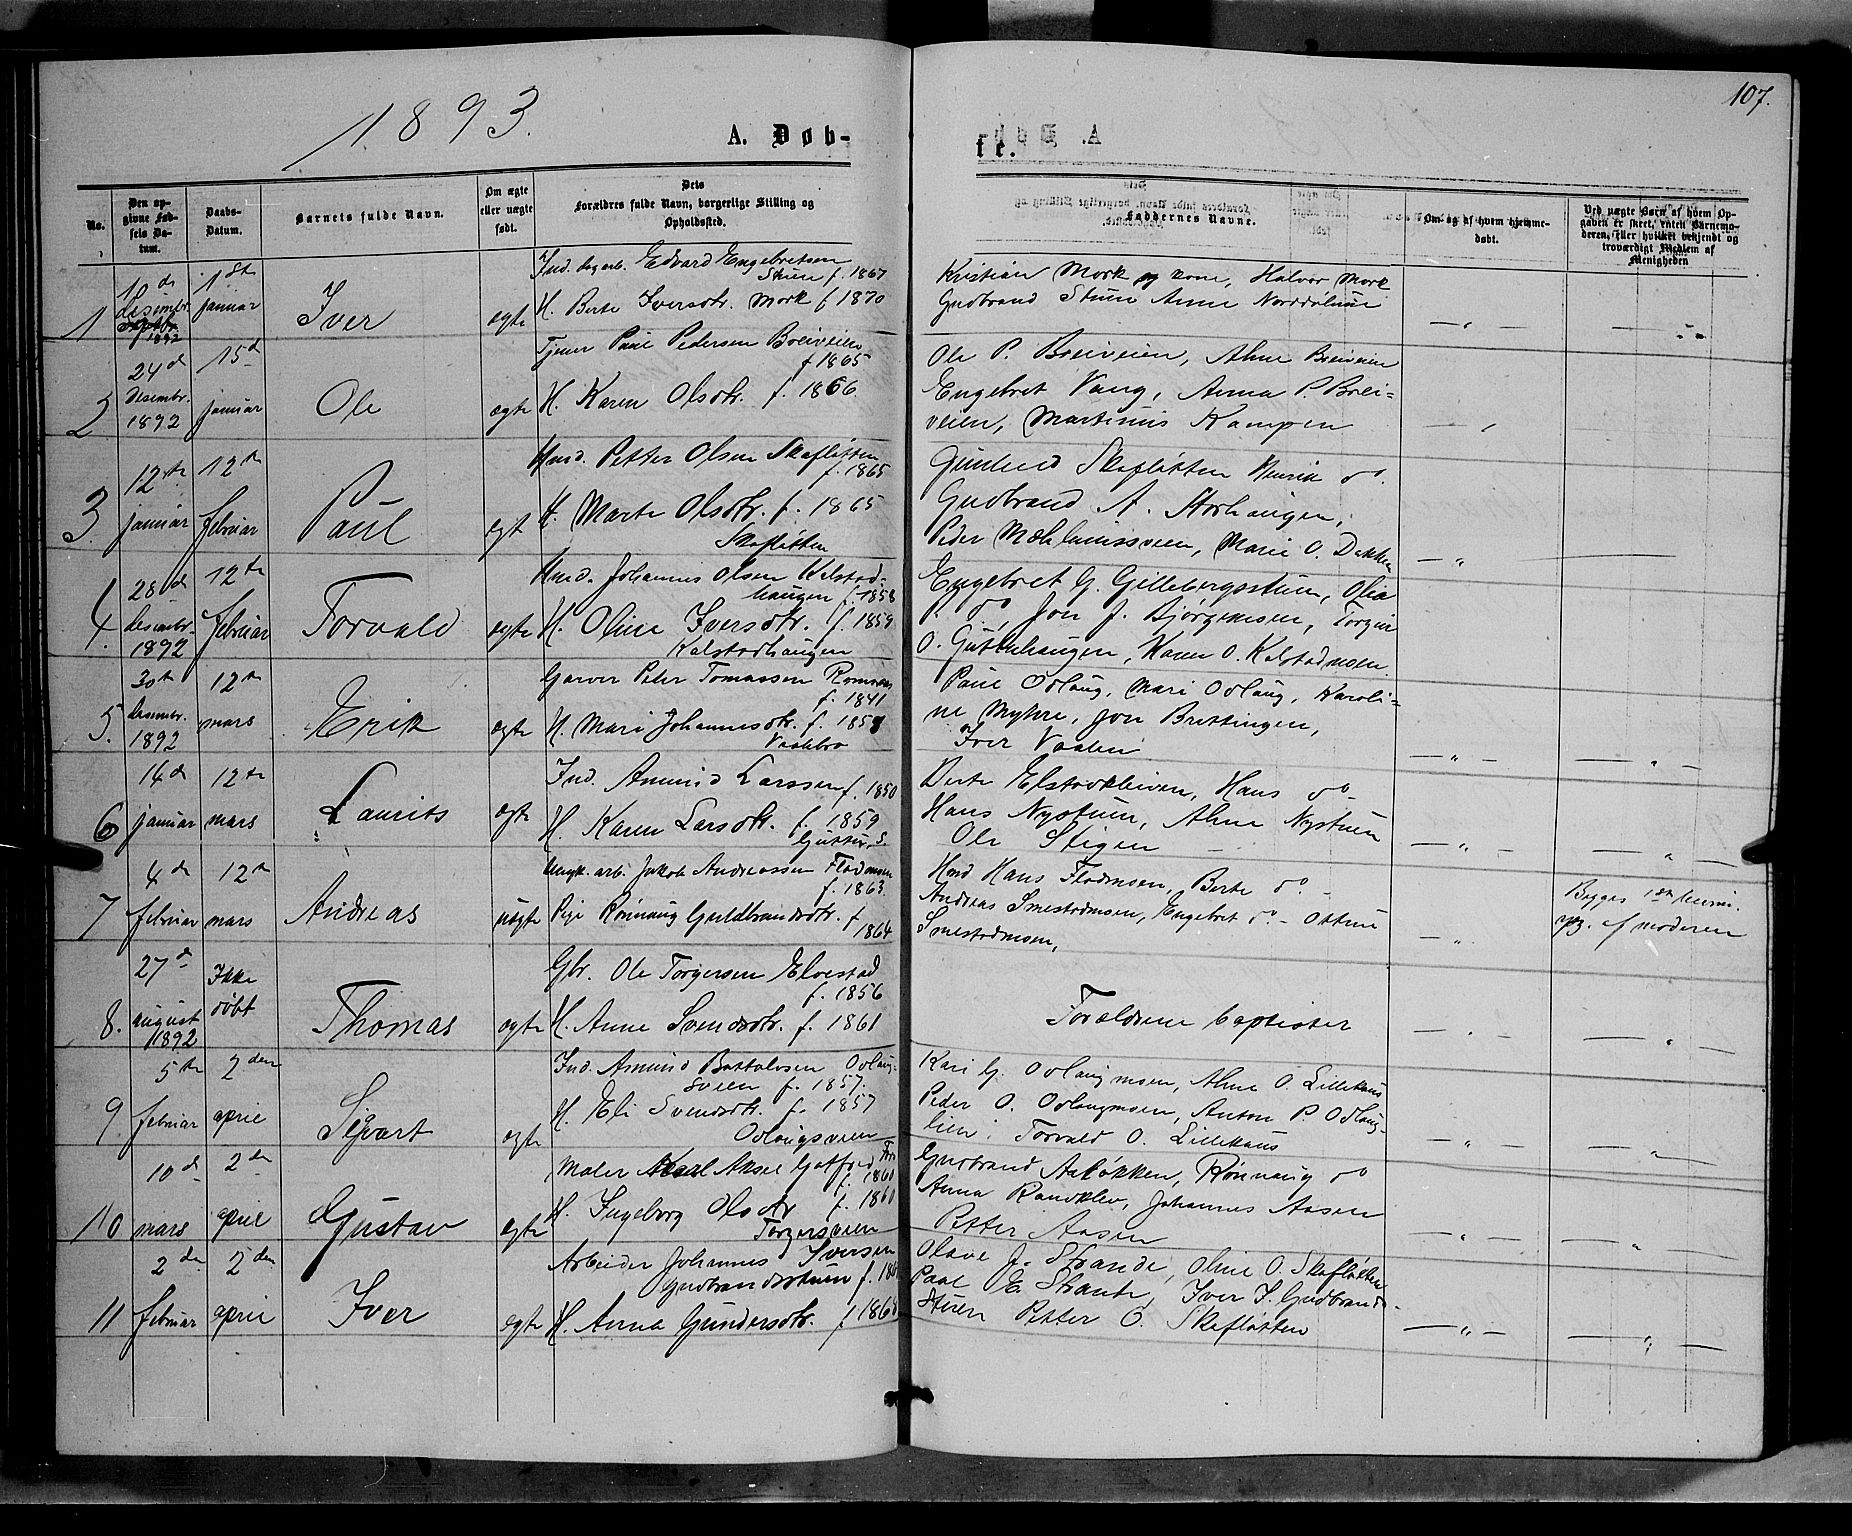 1893.
107.
A. Døb-
te.
No.
Den op-
givne Fød-
sels Da-
tum.
Daabs-
Datum.
Barnets fulde Navn.
Om ægte
eller uægte
født.
Dets
Forældres fulde Navn, borgerlige Stilling og
Opholdssted.
Faddernes Navne.
Om og af hvem hjemme-
døbt.
Ved uægte Børn af hvem Op-
gaven er skeet, enten Barnemo-
deren, eller hvilket bekjendt og
troværdigt Medlem af
Menigheden
1
10de
desembr.
1892
1ste
januar
Iver
egte
Ind. dagarb. Edvard Engebretsen
Stuen f. 1867
H. Berte Iversdtr. Mork f 1870
Kristian Mork og kone, Halvor Mork
Gudbrand Stuen Anne Norddølum
— " —
2
24de
desembr.
1892
15de
januar
Ole
egte
Tjener Paul Pedersen Breiveien
f 1865
H. Karen Olsdtr. f. 1866
Ole P. Breiveien, Aline Breiveien
Engebret Vang, Anna P. Brei-
veien, Martinus Kampen
3.
12te
januar
12te
februar
Paul
egte
Husd. Petter Olsen Skafløtten
f. 1865
H. Marte Olsdtr. f. 1865
Skafløtten
Skafløtten Henrik do.
Gudbrand A. Storhaugen,
Peder, Marie O. Dakken
— " —
4.
28de
desembr.
1892
12te
februar
Torvald
egte
Husd. Johannes Olsen Kalstad-
haugen f. 1858
H. Oline Iversdtr. f 1859
Kalstadhaugen
Engebret G. Gillebergsstuen, Olia
do Jon J. Bjørgemoen, Torgeir
O. Guttuhaugen, Karen O. Kalstadmoen
5.
30te
desembr.
1892
12te
mars
Erik
egte
Garver Peter Tomassen Romsaas
f. 1841
H. Mari Johannesdtr. f. 1858
Vaalebro
Paul Odlaug, Mari Odlaug, Karoli-
ne Myhre, Jon Brettingen,
Iver Vaalen
— " —
— " —
6
14de
januar
12te
mars
Laurits
egte
Ind. Amund Larssen f. 1850
H. Karen Larsdtr. f. 1859
Berte Elstadkleiven, Hans do
Hans Nystuen, Aline Nystuen
Ole Stigen
— " —
— " —
7
4de
februar
12te
mars
Andreas
uegte
arb. Jakob Andreassen Flodmoen
f. 1863.
Pige Rønnaug Guldbrandsdtr. f
1864
Hans Flodmoen, Berte do
Andreas Smestadmoen, Engebret do Ottine
Smestadmoen,
— " —
Begges 1ste leierm.
opg. af moderen
8.
27de
august
1892
Ikke
døbt
Thomas
egte
Gbr. Ole Torgersen Elvestad
f. 1856
H. Anne Svendsdtr. f. 1861
Forældrene baptister
— " —
— " —
9.
5te
februar
2den
april
Sigvart
egte
Ind. Asmund Bottolvsen Odlaug-
sveen f. 1857.
H. Eli Svendsdtr. f. 1857
Odlaugsveen
Kari G. Odlaugmoen, Aline O. Lillehaus
Peder O. Odlaugmoen, Anton P. Odlaug-
lien, Torvald O. Lillehaus
— " —
— " —
10
10de
mars
2den
april
Gustav
egte
Maler Aksel Gotfred
f. 1860
H. Ingeborg Olsdtr f. 1860
Torgersveen
Gudbrand Aaløkken, Rønnaug do
Anna Randklev, Johannes Aasen
Petter Aasen
— " —
— " —
11
2den
februar
2den
april
Iver
egte
Arbeider Johannes Iversen
Gudbrandsstuen f.
H. Anna Gundersdtr. f 1868
Olave J. Strande, Oline O. Skafløtten
Paul E. Strande, Iver I. Gudbrands-
stuen Petter O. Skafløtten
— " —
— " —